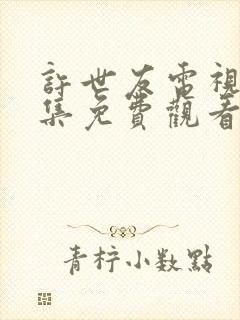 許世友電視
集免費觀看
青柠小数點